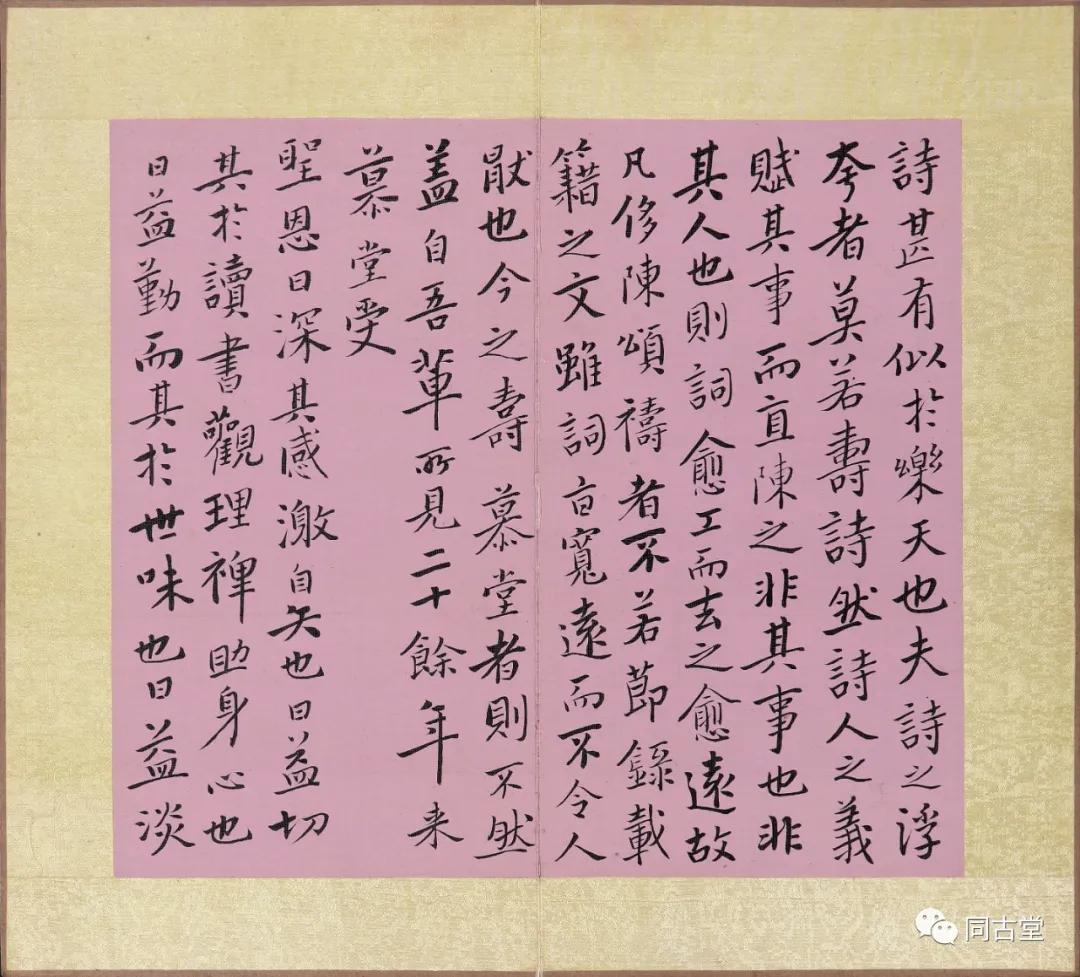 詩甚有似於樂天也夫詩之浮
夸者莫若壽詩然詩人之義
賦其事而直陳之非其事也非
其人也則詞愈工而去之愈遠故
凡侈陳頌禱者不若節錄載
籍之文雖詞旨寬遠而不令人
厭也今之壽慕堂者則不然
盖自吾輩所見二十餘年来
慕堂受
聖恩日深其感激自矢也日益切
其於讀書觀理裨助身心也
日益勤而其於世味也日益淡
同古堂